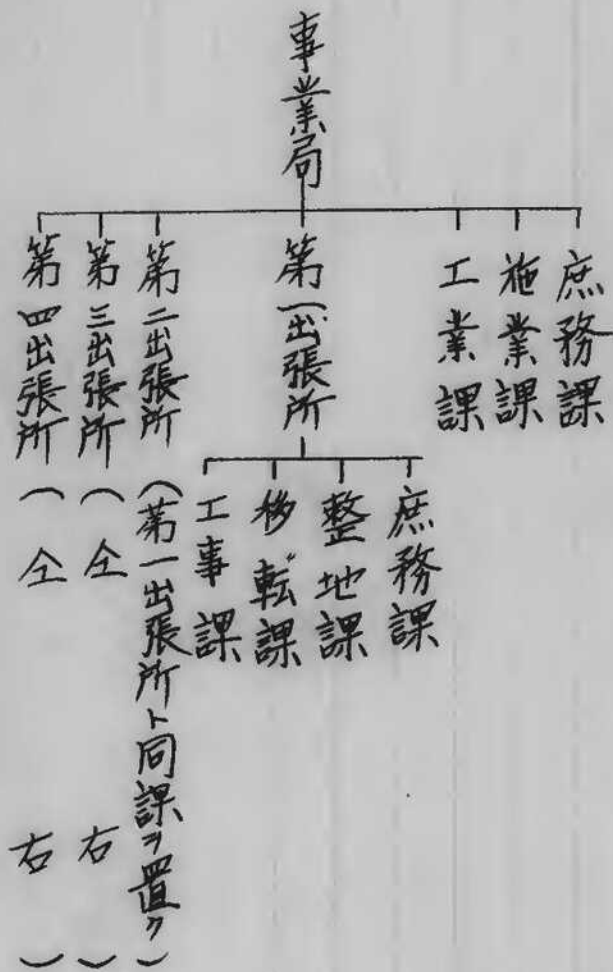 事業局
庶務課
施業課
工業課
第一出張所
庶務課
整地課
移転課
工事課
第二出張所(第一出張所ト同課ヲ置ク)
第三出張所(仝右)
第四出張所(仝右)